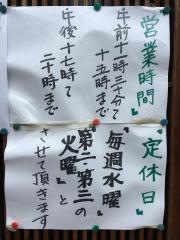 営業時間
午前十一時三十分て
十五時まで
午後十七時て
二十時まで
定休日
毎週水曜と
第二・第三の
火曜
させて頂きます